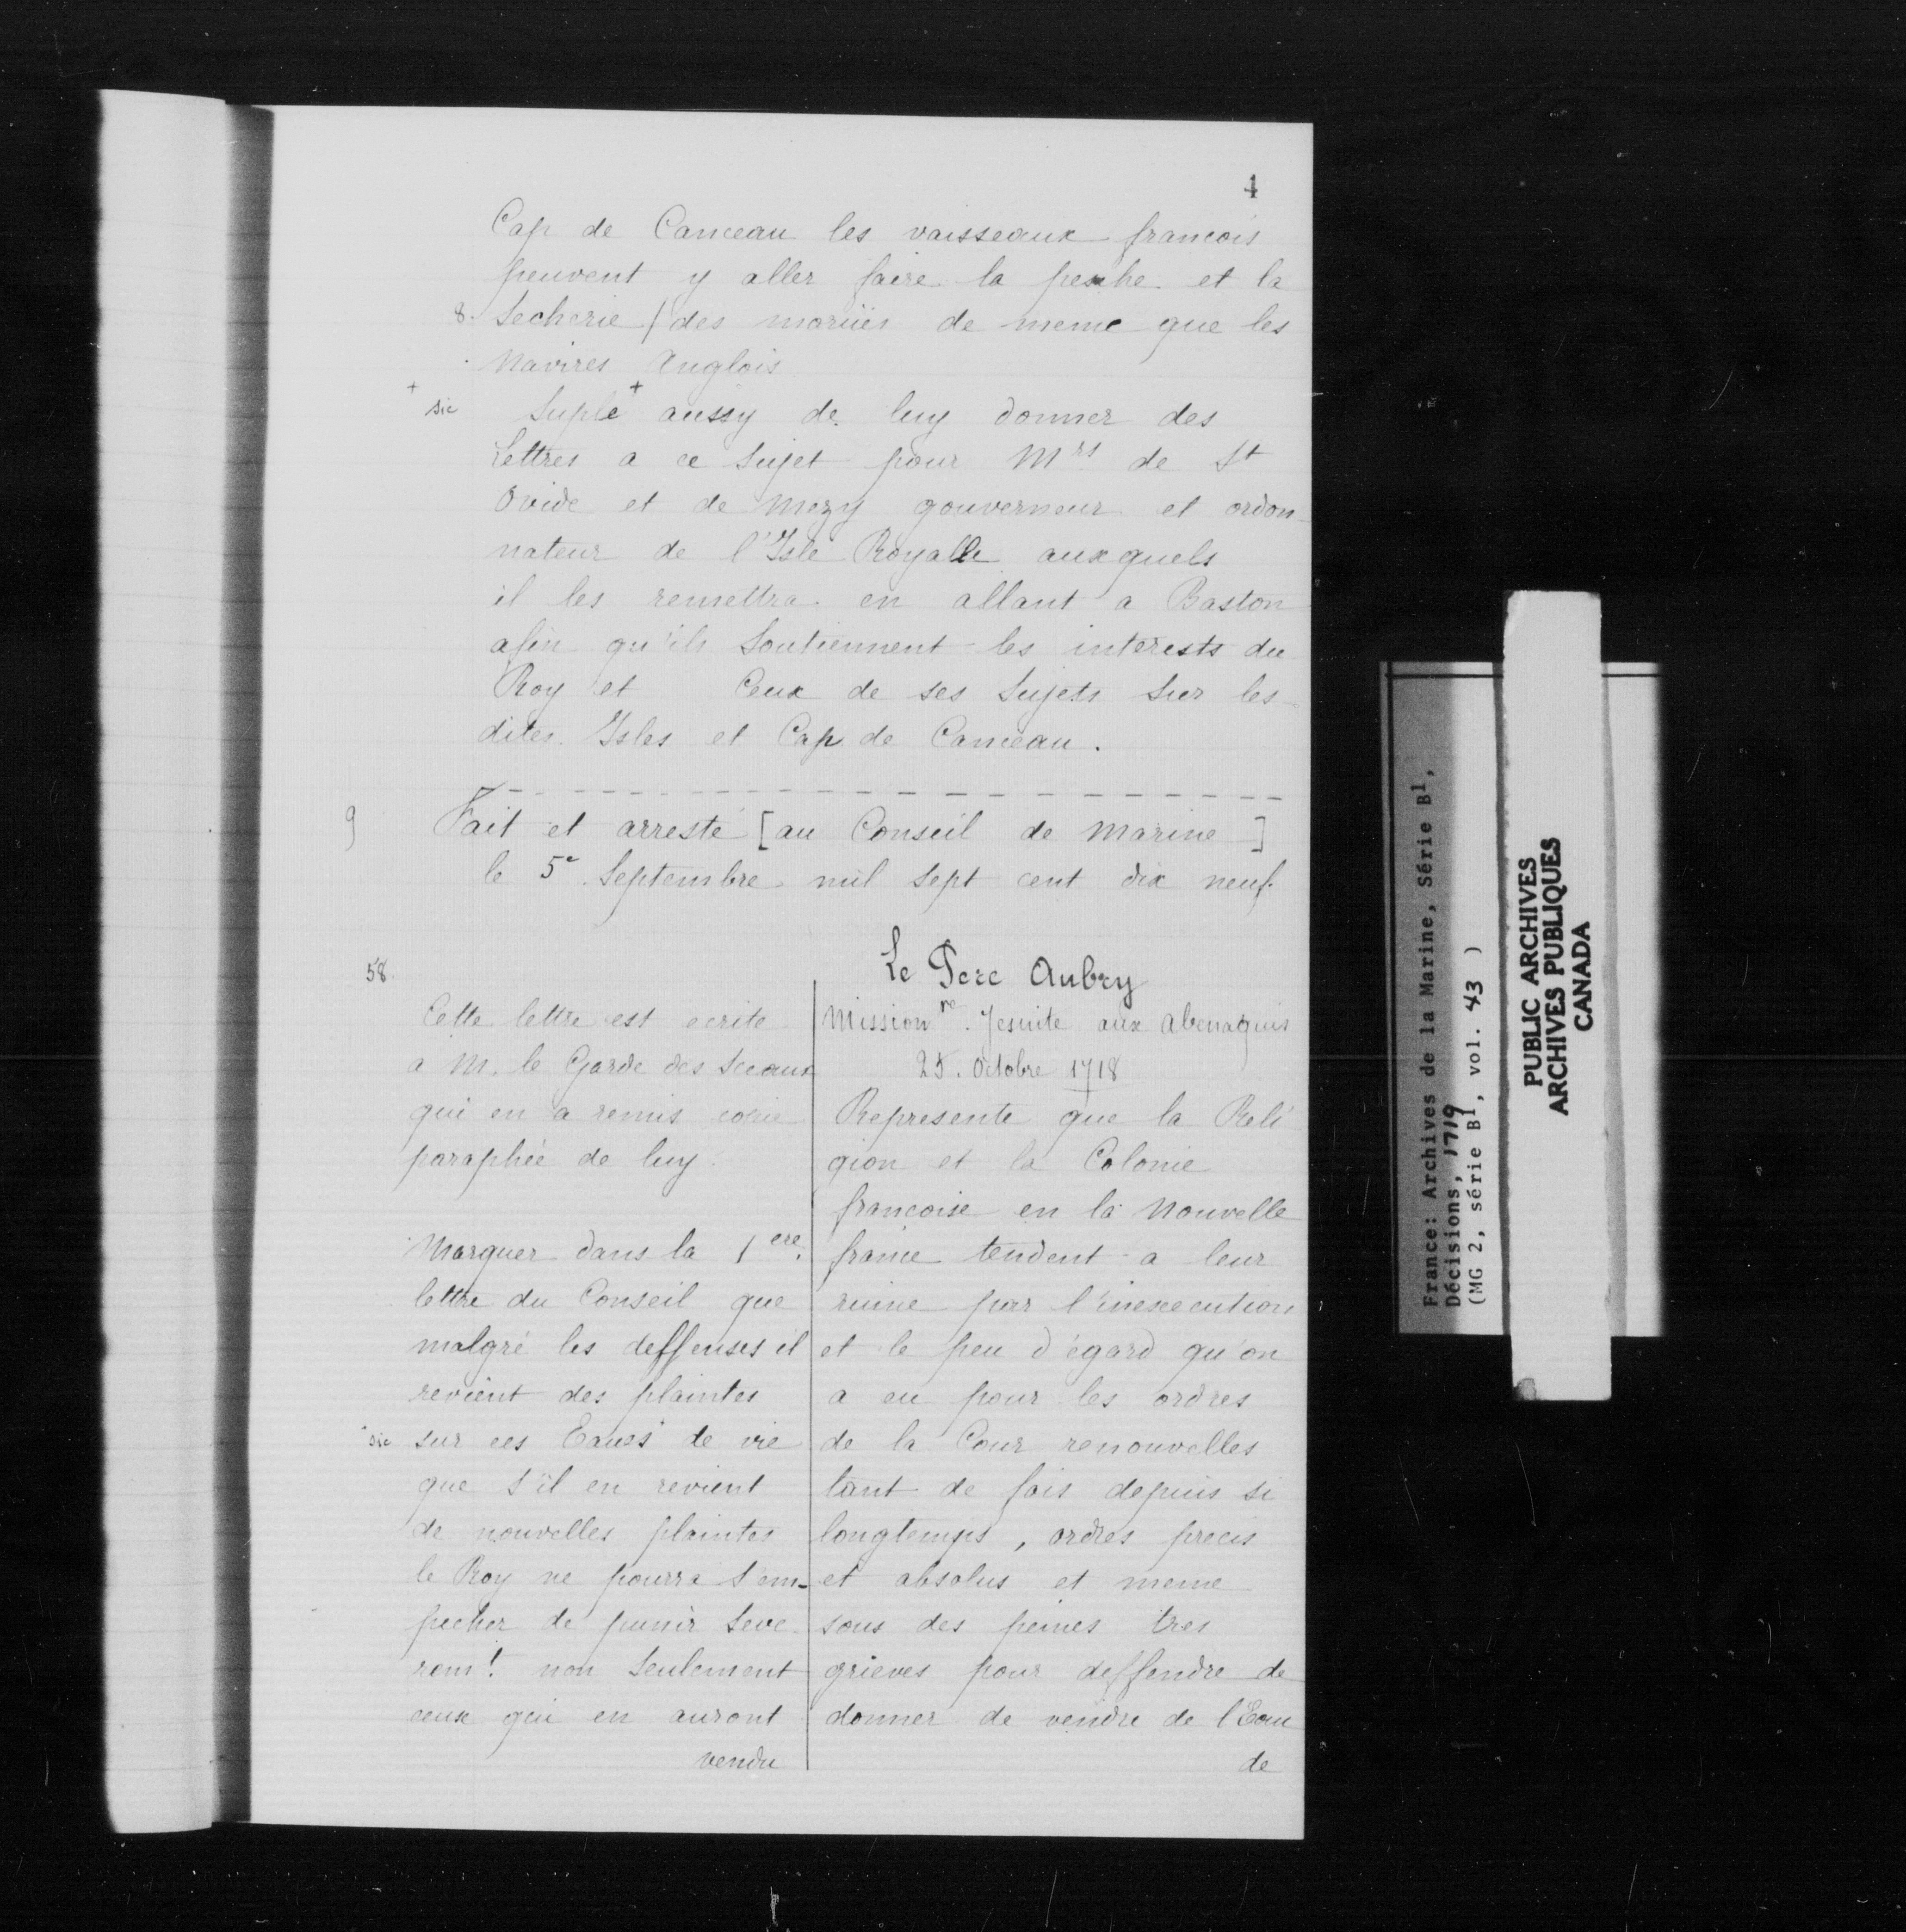 4
Cap de Canceau les vaisseaux francois
peuvent y aller faire la pesche et la
8. Secherie / des moruës de meme que les
Navires Anglois
+ sic Suple + aussy de luy donner des
Lettres a ce Sujet pour Mrs de St
Ovide et de Mezy gouverneur et ordon-
nateur de l'Isle Royalle auxquels
il les remettra en allant a Baston
afin qu'ils Soutiennent les interests du
Roy et Ceux de ses Sujets Sur les-
dites Isles et Cap de Canceau.
9 Fait et arresté [au Conseil de Marine]
le 5e Septembre mil Sept cent dix neuf.
58.
Cette lettre est ecrite
a M. le Garde des Sceaux
qui en a remis copie
paraphée de luy.
Marquer dans la 1ere
lettre du Conseil que
malgré les deffenses il
revient des plaintes
sic sur ces Eaues de vie
que s'il en revient
de nouvelles plaintes
le Roy ne pourra s'em-
pecher de punir Seve-
remt non Seulement
ceux qui en auront
vendu
Le Pere Aubry
Missionre Jesuite aux abenaquis
25. Octobre 1718
Represente que la Reli
gion et la Colonie
francoise en la Nouvelle
france tendent a leur
ruine par l'inexecution
et le peu d'égard qu'on
a eu pour les ordres
de la Cour renouvelles
tant de fois depuis si
longtemps, ordres precis
et absolus et meme
sous des peines tres
grieves pour deffendre de
donner de vendre de l'Eau
de
France: Archives de la Marine, Série B1,
Décisions, 1719
(MG 2, série B1, vol. 43 )
PUBLIC ARCHIVES
ARCHIVES PUBLIQUES
CANADA